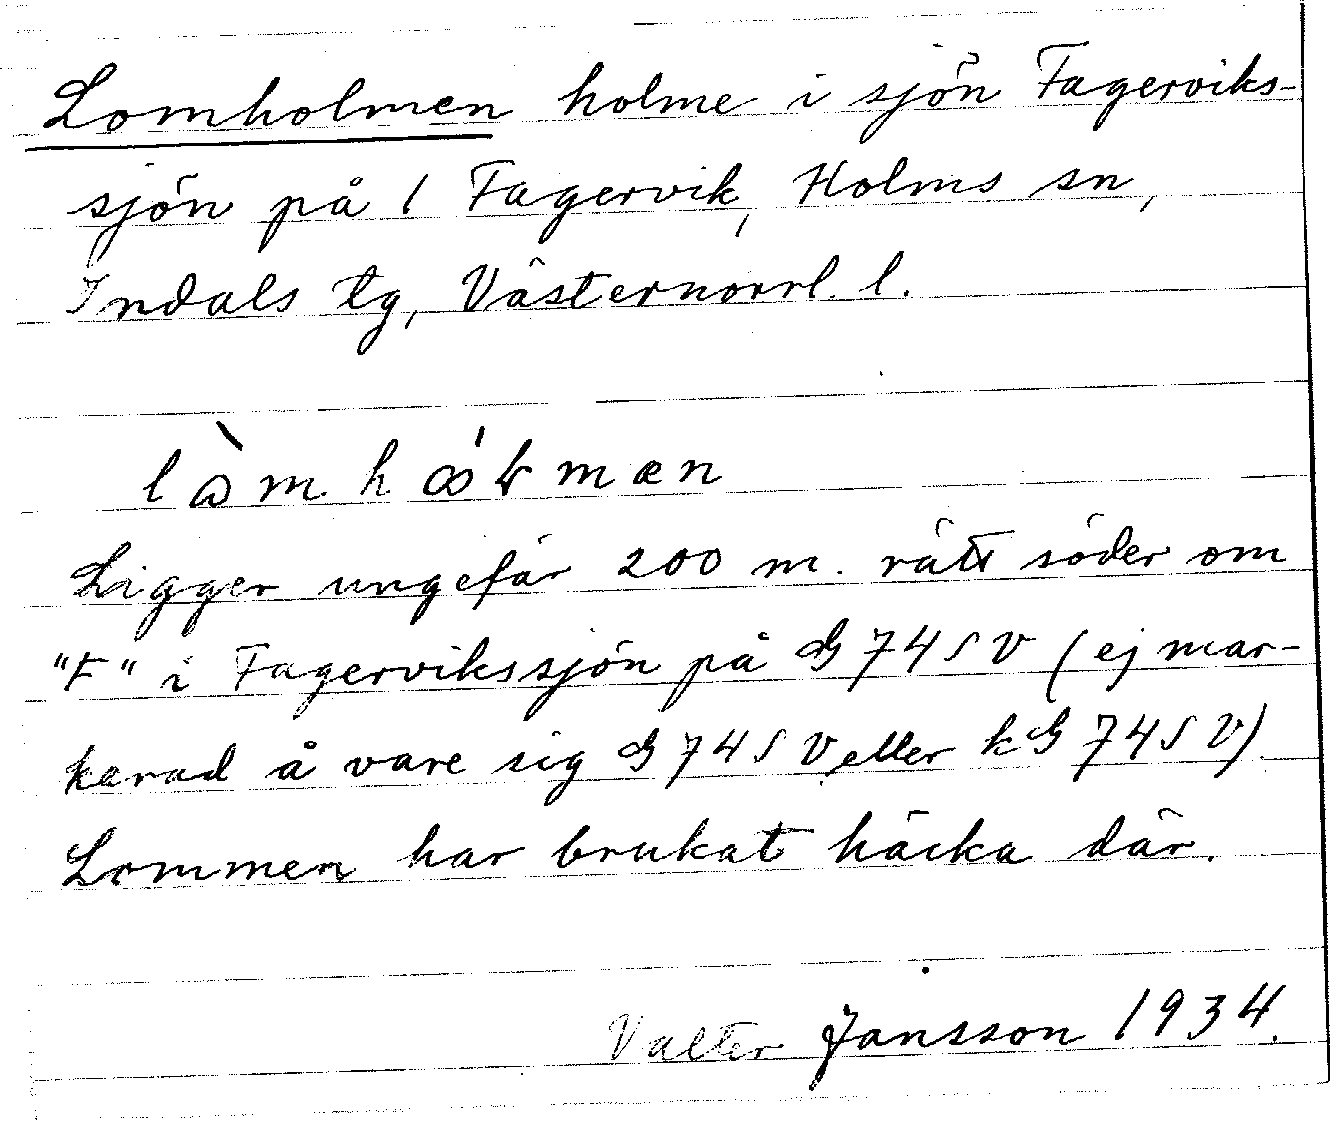 Lomholmen holme i sjön Fagerviks-
sjön på 1 Fagervik, Holms sn,
Indals tg, Västernorrl. l.
Ligger ungefär 200 m. rätt söder om
"F" i Fagervikssjön på G 74 SV (ej mar-
kerad å vare sig G 74 SV eller kG 74 SV).
Lommen har brukat häcka där.
Valter Jansson 1934.